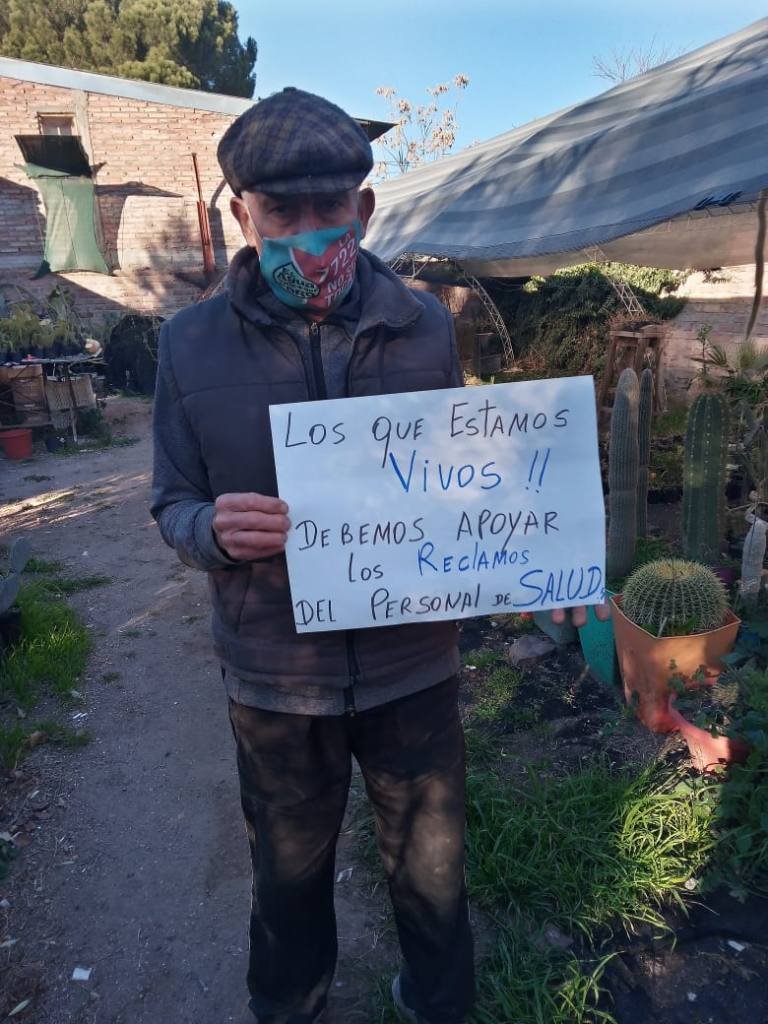 LA
7722
NO SE
Los que Estamos
Vivos !!
Debemos apoyar
los Reclamos
del Personal de SALUD.